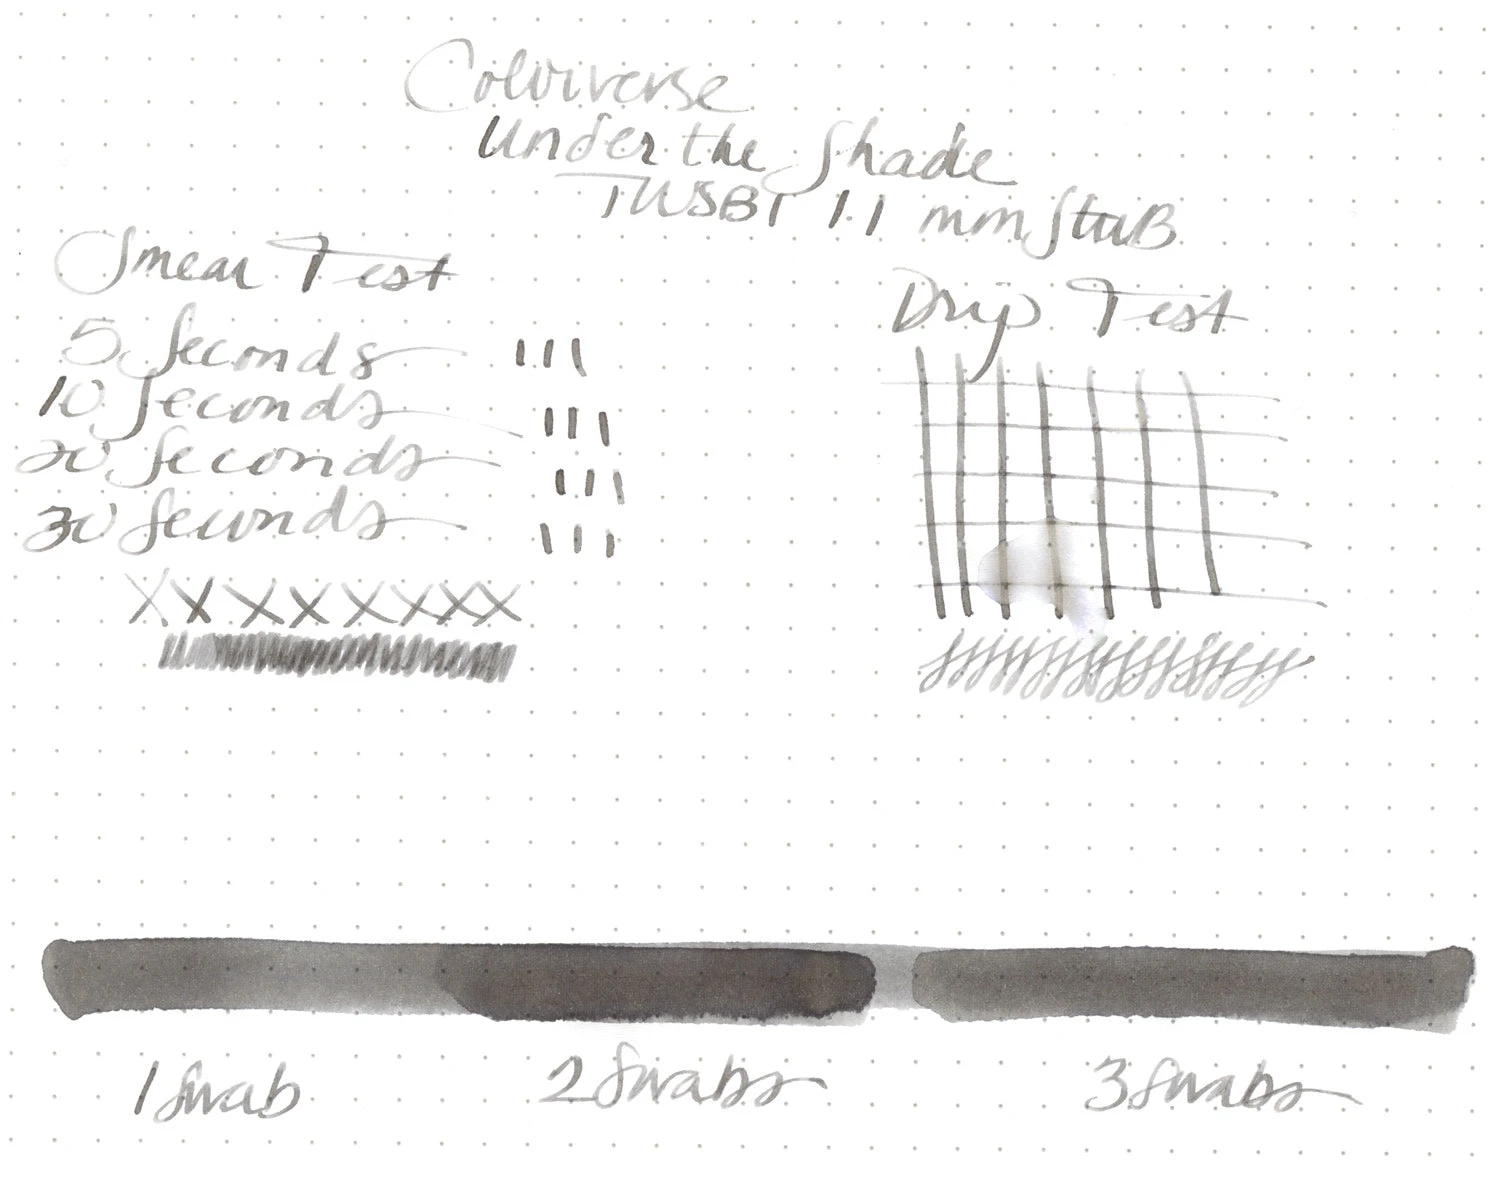 Colorverse
Under the Shade
TWSBI 1.1 mm Stub
Smear Test
5 Seconds
10 Seconds
20 Seconds
30 Seconds
Drip Test
1 Swab
2 Swabs
3 Swabs